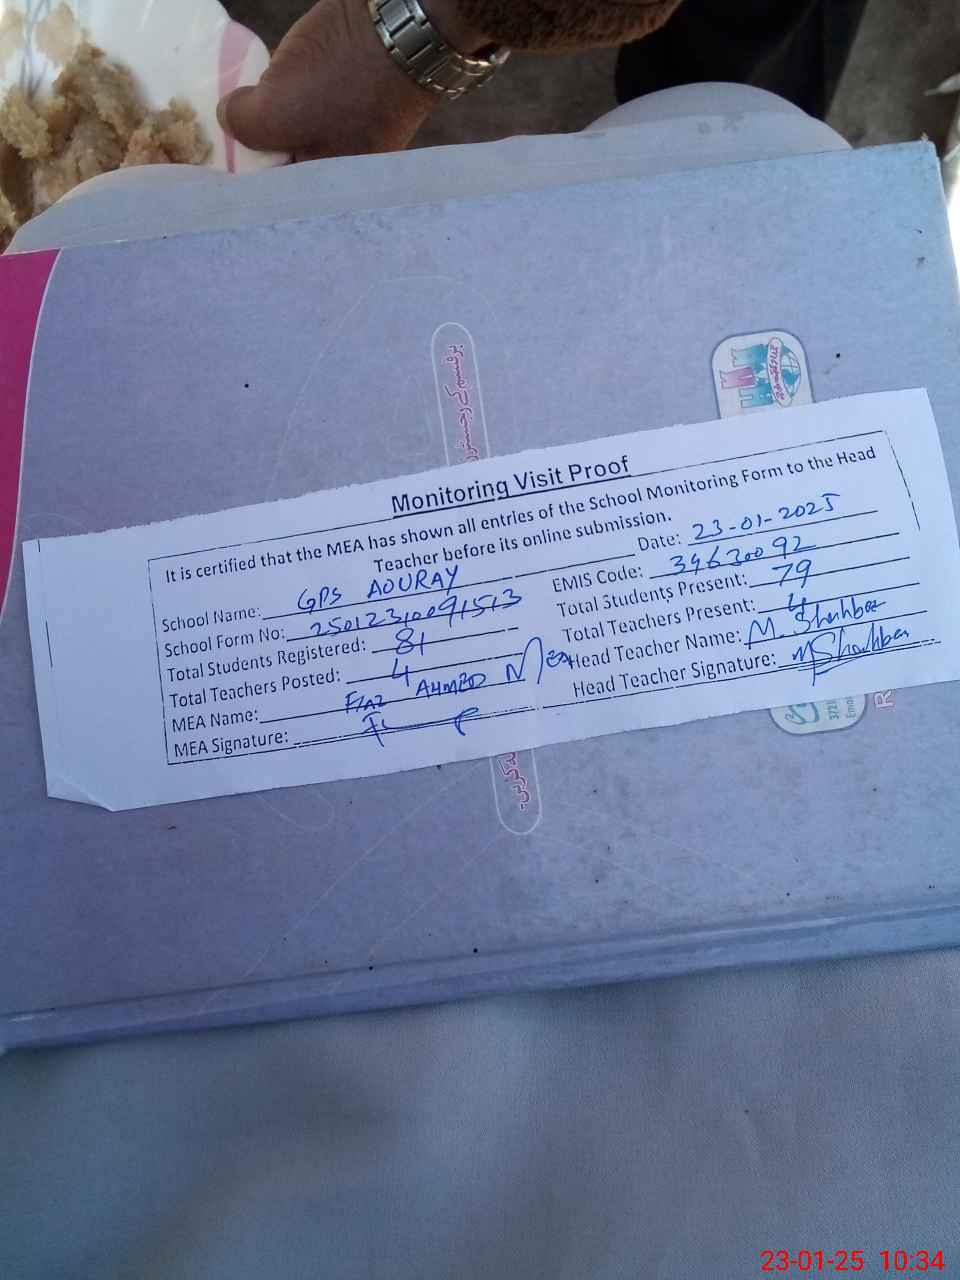 Monitoring Visit Proof
It is certified that the MEA has shown all entries of the School Monitoring Form to the Head
Teacher before its online submission.
School Name: GPS AOURAY Date: 23-01-2025
School Form No: EMIS Code:
Total Students Registered: 81 Total Students Present: 79
Total Teachers Posted: 4 Total Teachers Present: 4
MEA Name: FIAZ AHMED MEA Head Teacher Name: M. Shahbaz
MEA Signature: Head Teacher Signature: M Shahbaz
23-01-25 10:34